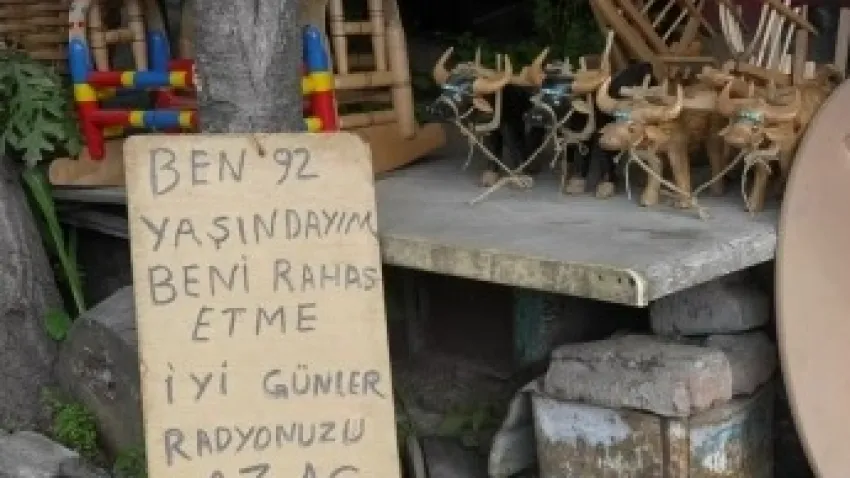 BEN 92
YAŞINDAYIM
BENİ RAHAS
ETME
İYİ GÜNLER
RADYONUZU
AZ AÇ